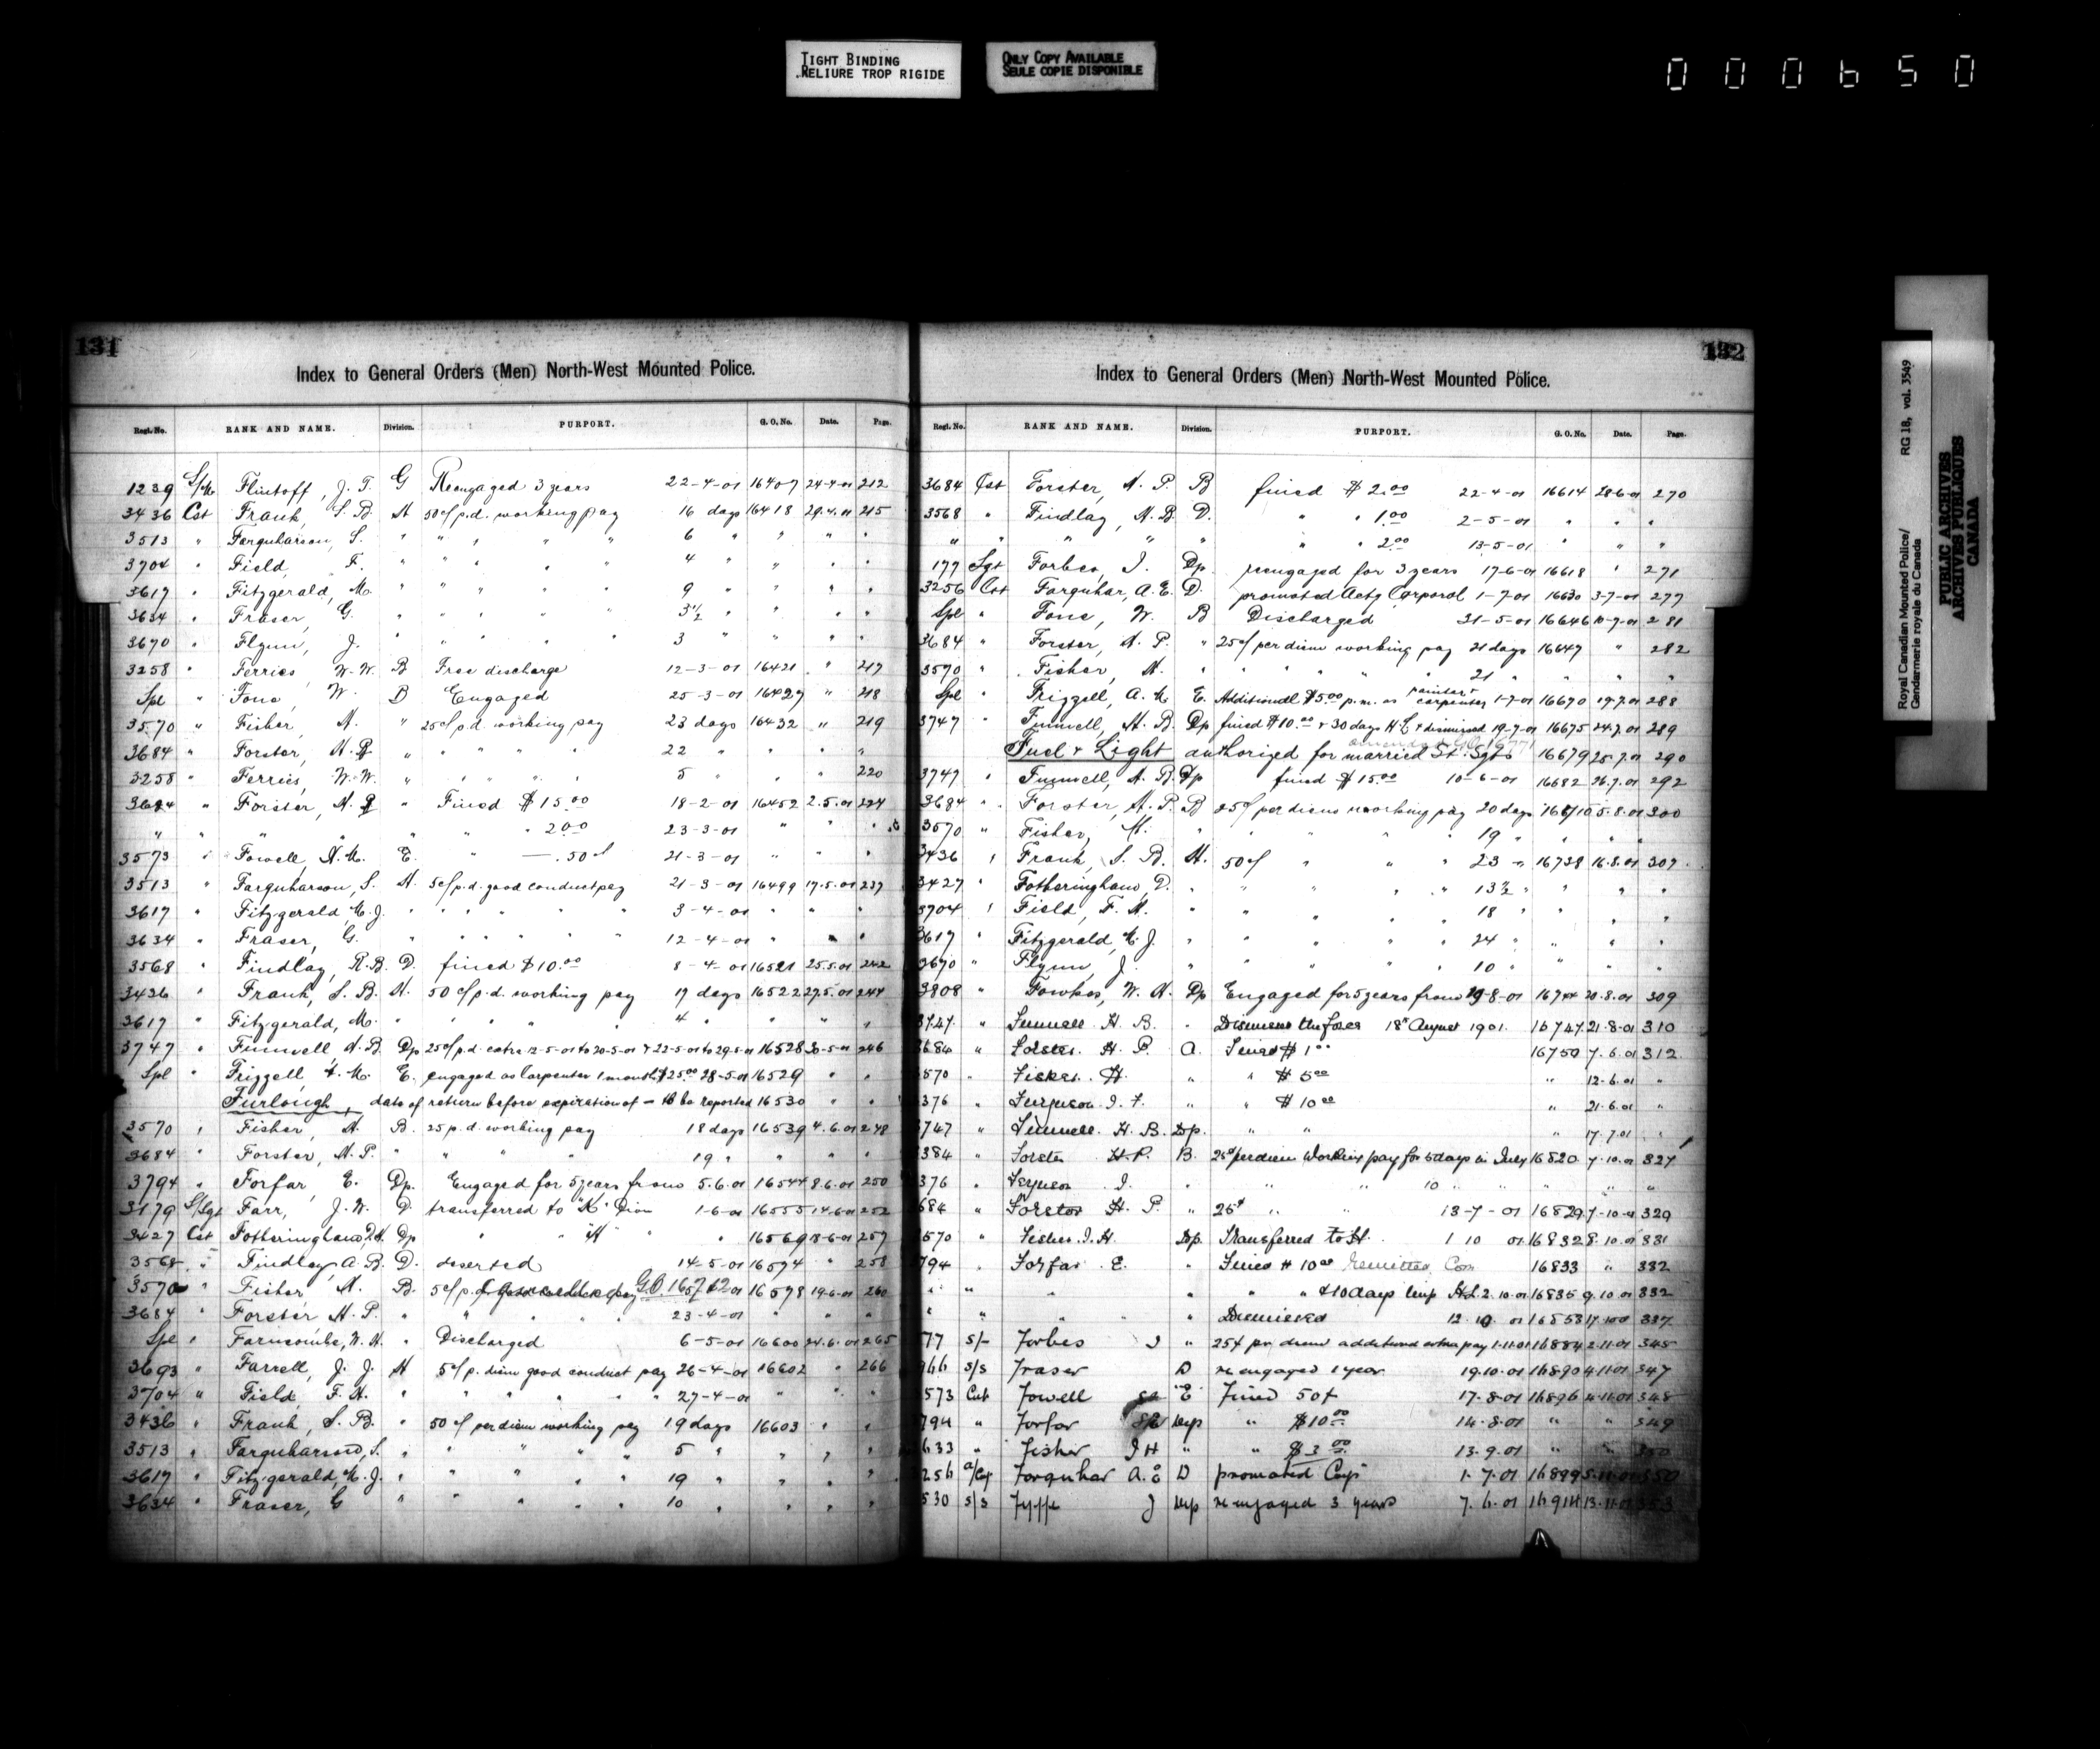 TIGHT BINDING
RELIURE TROP RIGIDE
ONLY COPY AVAILABLE
SEULE COPIE DISPONIBLE
000650
131
Index to General Orders (Men) North-West Mounted Police.
Regt. No. RANK AND NAME. Division. PURPORT. G. O. No. Date. Page.
1239 S/M Flintoff, J. T. G Reengaged 3 years 22-4-01 16407 24-4-01 212
3436 Cst Frank, S. B. H 50c/ p.d. working pay 16 days 16418 29.4.01 215
3513 " Farquharson, S. " " " " " 6 " " " "
3704 " Field, F. " " " " " 4 " " " "
3617 " Fitzgerald, M. " " " " " 9 " " " "
3634 " Fraser, G. " " " " 3½ " " " "
3670 " Flynn, J. " " " " " 3 " " " "
3258 " Ferries, W. W. B Free discharge 12-3-01 16421 " 217
Spl " Fone, W. B Engaged 25-3-01 16427 " 218
3570 " Fisher, H. " 25c/ p.d. working pay 23 days 16432 " 219
3684 " Forster, H. P. " " " " " 22 " " " "
3258 " Ferries, W. W. " " " " " 5 " " " 220
3684 " Forster, H. P. " Fined $15.00 18-2-01 16452 2.5.01 224
" " " " " " " 2.00 23-3-01 " " "
3573 " Fowell, H. M. E. " .50c/ 21-3-01 " " "
3513 " Farquharson, S. H. 5c/ p.d. good conduct pay 21-3-01 16499 17.5.01 237
3617 " Fitzgerald, M. J. " " " " " 3-4-01 " " "
3634 " Fraser, G. " " " " " 12-4-01 " " "
3568 " Findlay, R. B. D. fined $10.00 8-4-01 16521 25.5.01 242
3436 " Frank, S. B. H. 50c/ p.d. working pay 17 days 16522 27.5.01 244
3617 " Fitzgerald, M. " " " " " 4 " " " "
3747 " Funnell, H. B. Dp 25c/ p.d. extra 12-5-01 to 20-5-01 & 22-5-01 to 29-5-01 16528 30-5-01 246
Spl " Frizzell, A. M. E. engaged as Carpenter 1 month $25.00 28-5-01 16529 " "
Furlough, date of return before expiration of — to be reported 16530 " "
3570 " Fisher, H. B. 25 p.d. working pay 18 days 16539 4.6.01 248
3684 " Forster, H. P. " " " " 19 " " " "
3794 " Forfar, E. Dp. Engaged for 5 years from 5.6.01 16544 8.6.01 250
3179 S/Sgt Farr, J. W. D. transferred to "K" Divn 1-6-01 16555 14-6-01 252
3427 Cst Fotheringham, D. Dp " "H" " 16569 257
3568 " Findlay, A. B. D. deserted 14-5-01 16574 " 258
3570 " Fisher H. B. 5c/ p.d. good conduct pay 16578 19-6-01 260
3684 " Forster H. P. " " " " 23-4-01 " " "
Spl " Farncombe, W. H. " Discharged 6-5-01 16600 24.6.01 265
3693 " Farrell, J. J. H 5c/ p. diem good conduct pay 26-4-01 16602 " 266
3704 " Field, F. H. " " " " " " 27-4-01 " " "
3436 " Frank, S. B. " 50c/ per diem working pay 19 days 16603 " "
3513 " Farquharson, S. " " " " " 5 " " " "
3617 " Fitzgerald, M. J. " " " " " 19 " " " "
3634 " Fraser, G " " " " " 10 " " " "
132
Index to General Orders (Men) North-West Mounted Police.
Regt. No. RANK AND NAME. Division. PURPORT. G. O. No. Date. Page.
3684 Cst Forster, H. P. B fined $2.00 22-4-01 16614 28-6-01 270
3568 " Findlay, H. B. D. " " 1.00 2-5-01 " " "
" " " " " " " 2.00 13-5-01 " " "
177 Sgt Forbes, J. Dp reengaged for 3 years 17-6-01 16618 " 271
3256 Cst Farquhar, A. E. D. promoted Actg Corporal 1-7-01 16630 3-7-01 277
Spl " Fone, W. B Discharged 31-5-01 16646 10-7-01 281
3684 " Forster, H. P. " 25c/ per diem working pay 21 days 16647 " 282
3570 " Fisher, H. " " " " " 21 " " " "
Spl " Frizzell, A. M. E. Additional $5.00 p.m. as painter & carpenter 1-7-01 16670 19.7.01 288
3747 " Funnell, H. B. Dp fined $10.00 & 30 days H L & dismissed 19-7-01 16675 24.7.01 289
Fuel & Light authorized for married St. Sgts 16679 25.7.01 290
3747 " Funnell, H. B. Dp fined $15.00 10-6-01 16682 26.7.01 292
3684 " Forster, H. P. B 25c/ per diem working pay 20 days 16710 5.8.01 300
3570 " Fisher, H. " " " " " 19 " " " "
3436 " Frank, S. B. H. 50c/ " " " 23 " 16738 16.8.01 307
3427 " Fotheringham, D. " " " " " 13½ " " " "
3704 " Field, F. H. " " " " " 18 " " " "
3617 " Fitzgerald, M. J. " " " " " 24 " " " "
3670 " Flynn, J. " " " " " 10 " " " "
3808 " Fowkes, W. H. Dp Engaged for 5 years from 19-8-01 16744 20.8.01 309
3747 " Funnell H. B. " Dismissed the force 18th August 1901. 16747 21-8-01 310
3684 " Forster. H. P. A. Fined $1.00 16750 7.6.01 312
3570 " Fisher. H. " " $5.00 " 12-6-01 "
376 " Ferguson. J. F. " " $10.00 " 21-6-01 "
3747 " Funnell. H. B. Dp. " " " 17.7.01 "
384 " Forster H. P. B. 25c per diem Working pay for 5 days in July 16820 7.10.01 327
376 " Ferguson J. " " " 10 " " " "
684 " Forster H. P. " 25c " " 13-7-01 16829 7-10-01 329
570 " Fisher J. H. Dp. Transferred to H 1 10 01 16832 8.10.01 331
794 " Forfar E. " Fined $10.00 remitted Com 16833 " 332
" " " " " " & 10 days imp H.L. 2.10.01 16835 9.10.01 332
" " " Dismissed 12.10.01 16853 337
177 S/- Forbes J " 25¢ per diem additional extra pay 1-11-01 16884 2-11-01 345
S/S Fraser D re engaged 1 year 19.10.01 16890 4-11-01 347
573 Cst Fowell "E" Fined 50¢ 17-8-01 16896 4-11-01 348
794 " Forfar Dep " $10.00 14-8-01 " " 349
633 " Fisher J H " " $3.00 13.9.01 " " 350
256 a/Cp Farquhar A. E D promoted Corpl 1.7.01 16899 5-11-01 350
530 S/S Fyffe J Dep re-engaged 3 years 7.6.01 16914 13-11-01 353
Royal Canadian Mounted Police/ RG 18, vol. 3549
Gendarmerie royale du Canada
PUBLIC ARCHIVES
ARCHIVES PUBLIQUES
CANADA